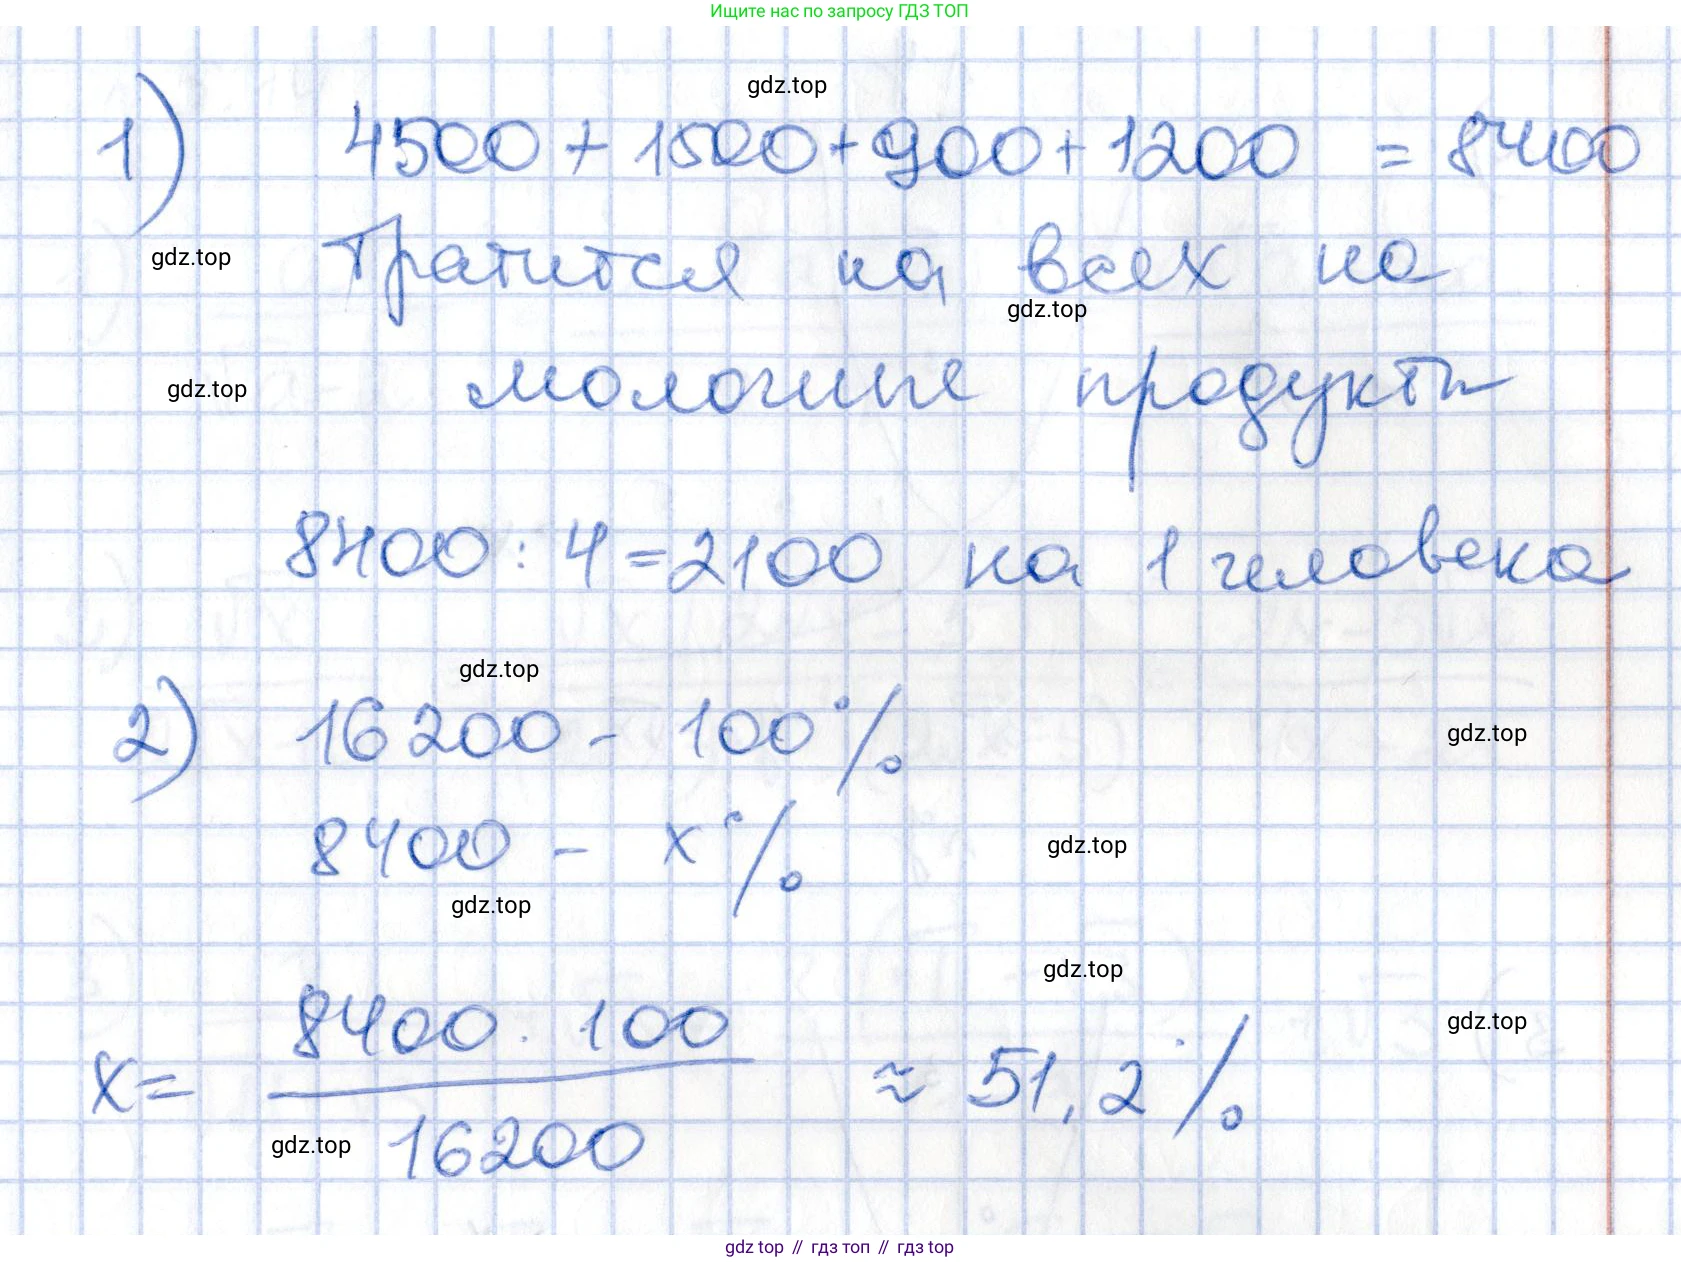 Ищите нас по запросу ГДЗ ТОП
gdz.top
1) 4500 + 1500 + 900 + 1200 = 8400
gdz.top
Тратится на всех на
gdz.top
gdz.top
молочные продукты
8400 : 4 = 2100 на 1 человека
gdz.top
2) 16200 - 100%
gdz.top
8400 - x%
gdz.top
gdz.top
gdz.top
gdz.top
x = 8400 · 100 / 16200 ≈ 51,2%
gdz.top
gdz top // гдз топ // гдз top